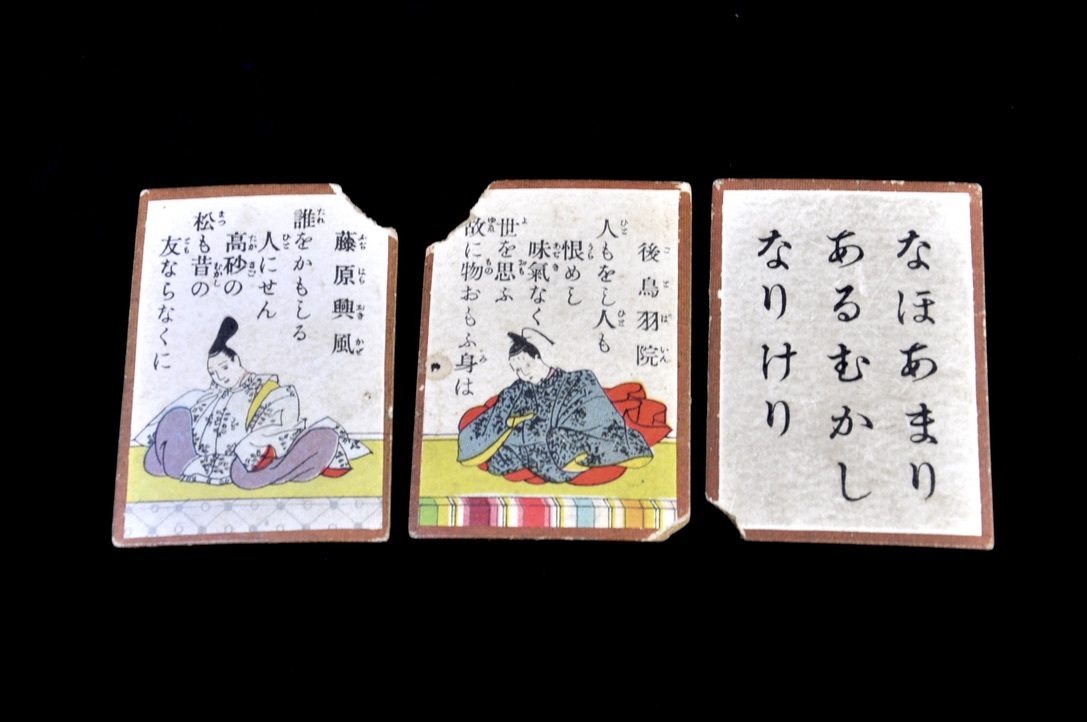 藤原興風
誰をかもしる
人にせん
高砂の
松も昔の
友ならなくに
後鳥羽院
人もをし人も
恨めし
味氣なく
世を思ふ
故に物おもふ身は
なほあまり
あるむかし
なりけり